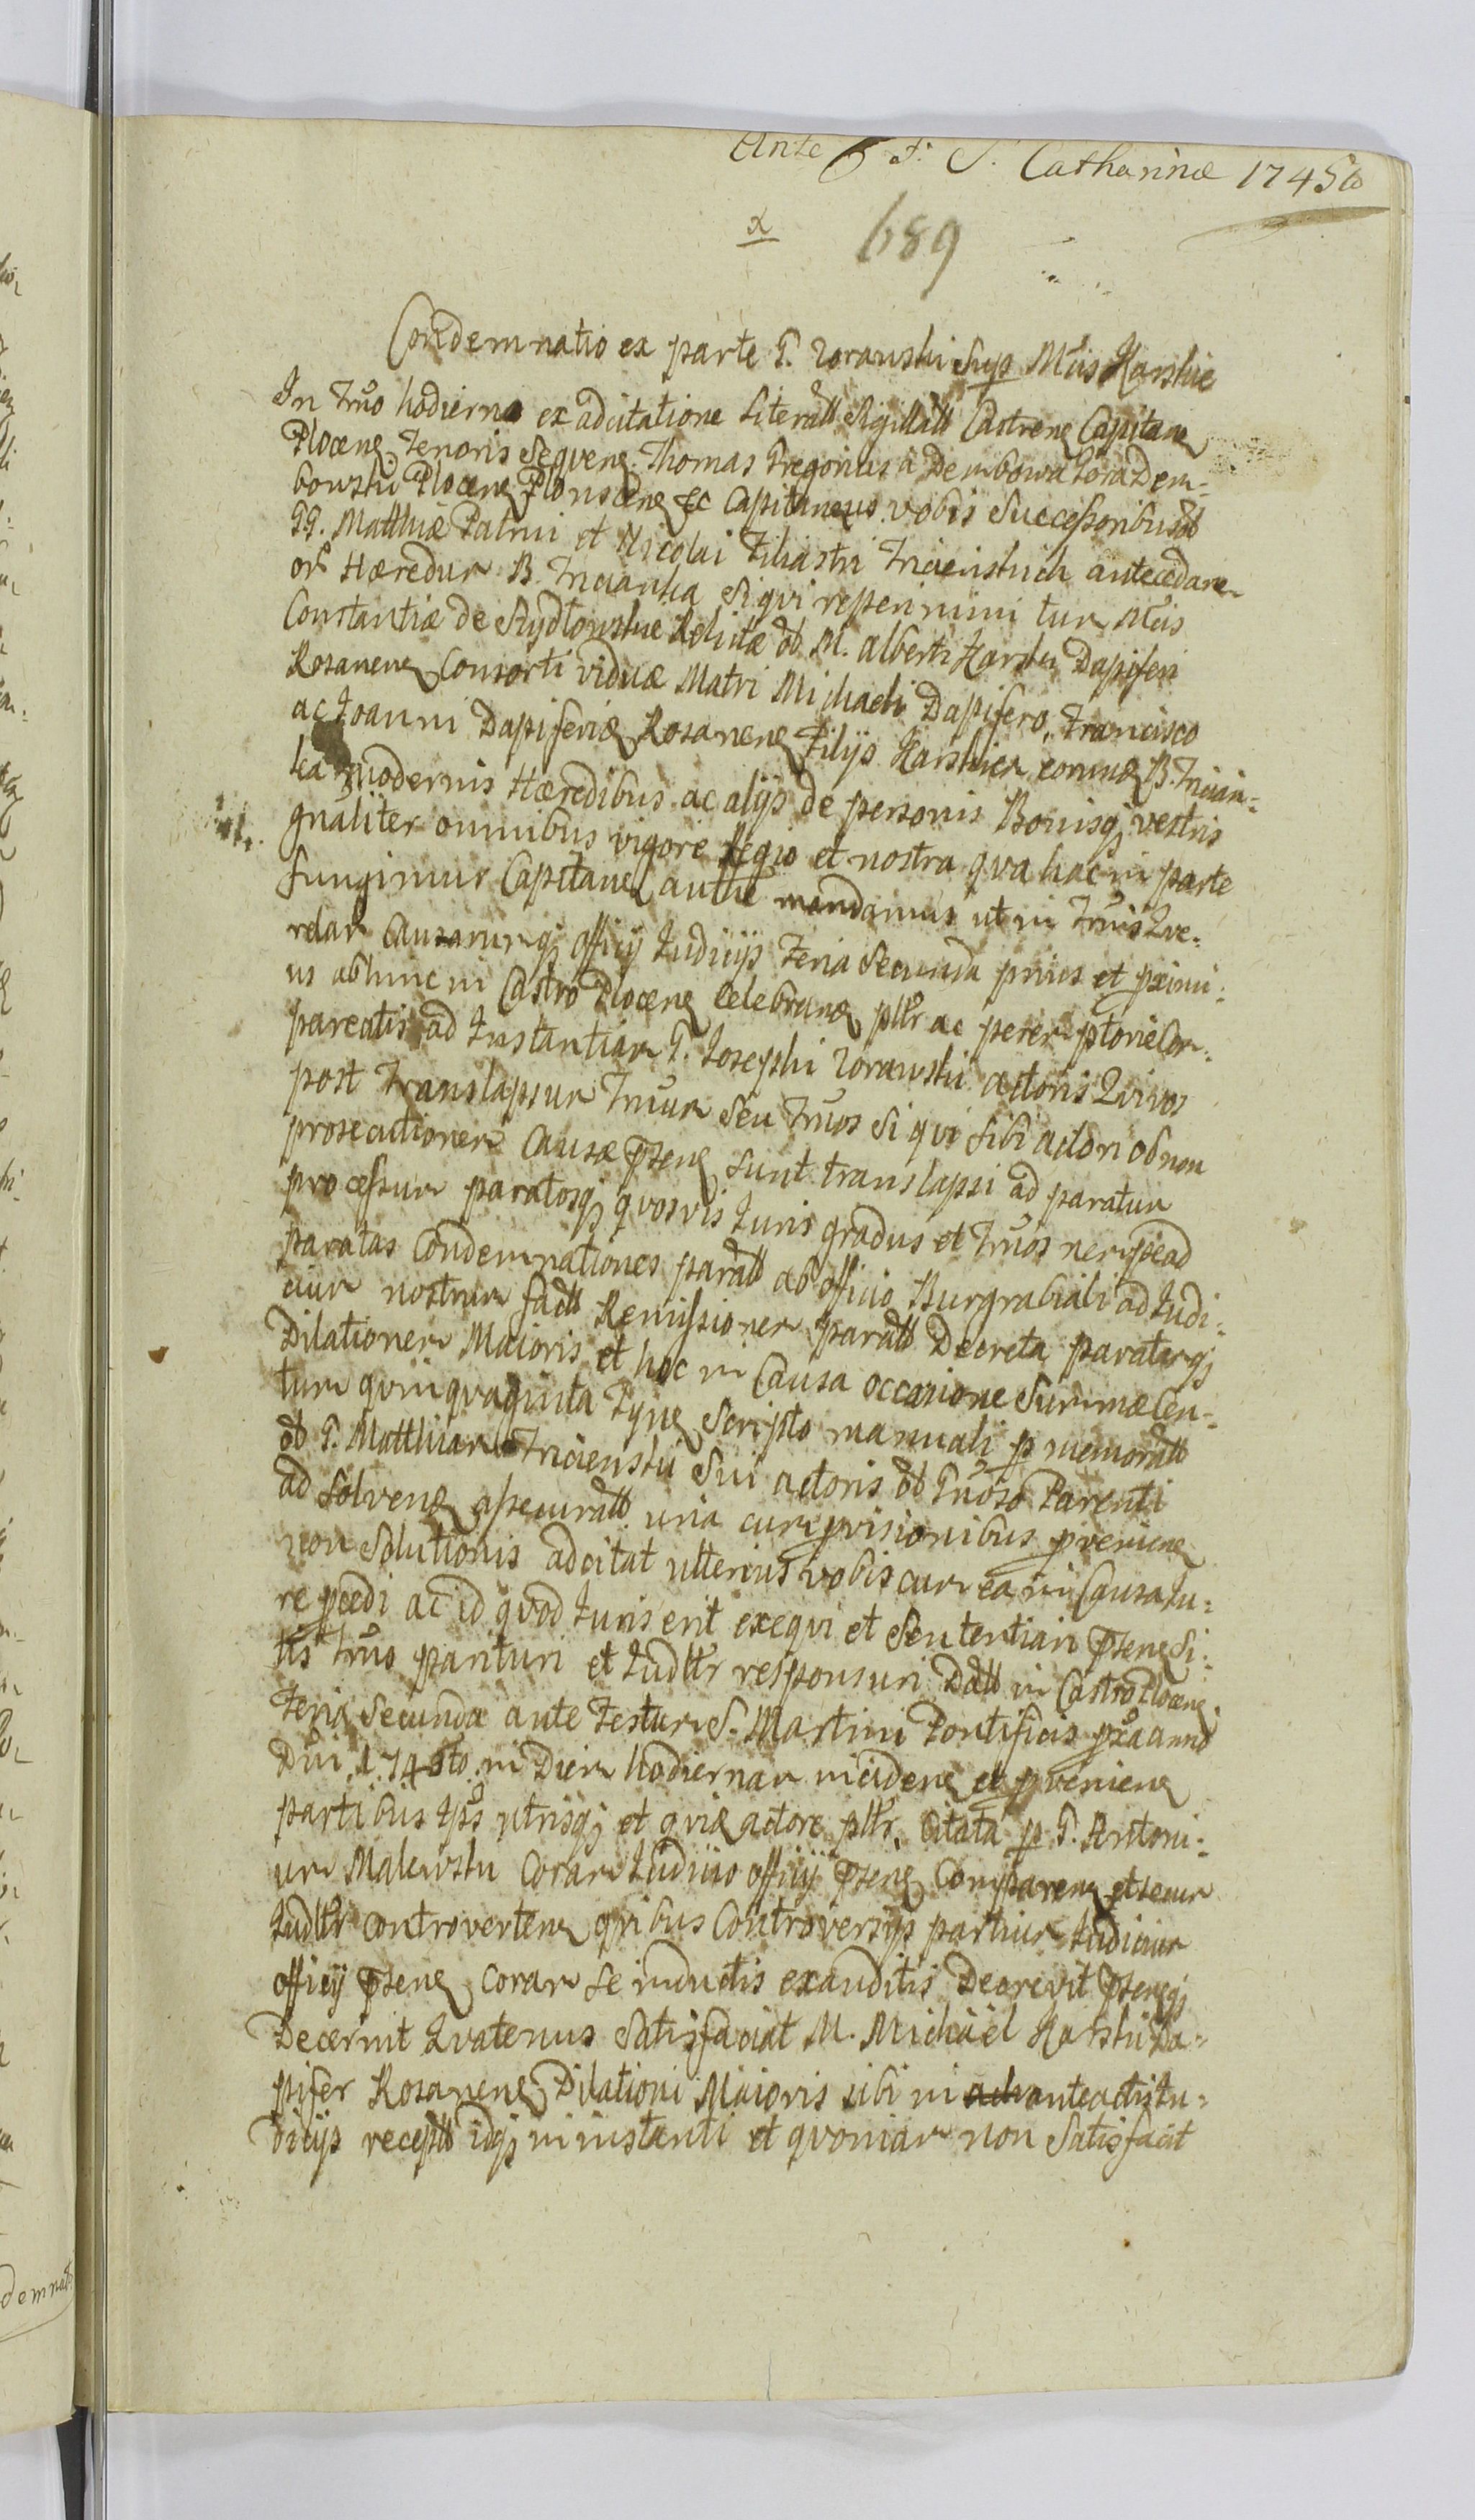 Ante F. S. Catharinæ 1745to
x 689
Condemnatio ex parte G. Zorawski Sup Mcis Harskie
In Trno hodierno ex adcitatione Literall Sigillall Castrenᶒ Capitanᶒ
Plocenᶒ Tenoris Sequenᶒ. Thomas Gregorius a Dembowa Gora Dem=
bowski Plocenᶒ Plonscenᶒ &c Capitaneus vobis Successoribus ol
GG. Matthiæ Patrui et Nicolai Filiastri Trcienskich antecedane=
or Hæredum B. Trcianka si qvi reperirimi tur Mcis
Constantiæ de Szydlowskie Relictæ ol M. Alberti Harski Dapiferi
Rosanenᶒ Consorti viduæ Matri Michaeli Dapifero, Francisco
ac Joanni Dapiferidæ Rosanenᶒ Filijs Harskiem eorundᶒ B. Trcian=
ka modernis Hæredibus ac alijs de personis Bonisqȝ vestris
gnaliter omnibus vigore Regio et nostra qva hac in parte
fungimur Capitanᶒ authe mandamus ut in Trnis Qve=
relar Causarumqȝ Officij Judicijs Feria Secunda prius et pximi=
us abhinc in Castro Plocenᶒ Celebrandᶒ pllr ac peremptorie Com=
pareatis ad Instantiam G. Josephi Zorawski actoris Qvi vos
post translapsum Trnum seu Trnos si qvi sibi actori ob non
prosecutionem Causæ psenᶒ sunt translapsi ad paratum
processum paratosqȝ qvosvis Juris gradus et Trnos nempe ad
paratas Condemnationes parall ab Officio Burgrabiali ad Judi=
cium nostrum fall Remissionem parall Decreta paratasqȝ
Dilationem Maioris et hoc in Causa occasione Summæ Cen=
tum qvinqvaginta Tynᶒ Scripto manuali p memorall
ol G. Matthiam Trcienski Sui actoris ol Gnoso Parenti
ad Solvendᶒ assecurall una cum pvisionibus pvenienᶒ
non Solutionis adcitat ulterius vobiscum ea in Causa Ju=
re pcedi ac id qvod Juris erit exeqvi et Sententiam psenᶒ Si=
tis Trno parituri et Judllr responsuri Dall in Castro Plocenᶒ
Feria Secunda ante Festum S. Martini Pontificis pxa anno
Dni 1745to in Diem hodiernam incidenᶒ et pvenienᶒ
partibus Ipis utrisqȝ et qvidᶒ actore pllr, citata p G. Antoni=
um Malewski Coram Judicio officij psenᶒ Comparenᶒ et secum
Judllr Controvertenᶒ qvibus Controversijs partium Judicium
officij psenᶒ coram se inductis exauditis Decrevit psenqȝ
Decernit Qvatenus Satisfaciat M. Michaël Harski Da=
pifer Rosanenᶒ Dilationi Maioris sibi in anteactis Ju=
dicijs recepll idqȝ in instanti et qvoniam non Satisfacit